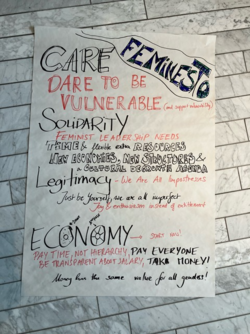 CARE FEMINESTO
DARE TO BE
VULNERABLE (and support vulnerability)
SOLIDARITY
FEMINIST LEADERSHIP NEEDS
TIME & flexible extra RESOURCES
NEW ECONOMIES, NEW STRUCTURES &
a CULTURAL
Legitimacy - We Are All Impostresses
Just be yourself, we are all imperfect
instead of entitlement
ECONOMY → SORT IT!
PAY TIME, NOT HIERARCHY, PAY EVERYONE
BE TRANSPARENT ABOUT SALARY, TAKE MONEY!
Money has the same value for all genders!